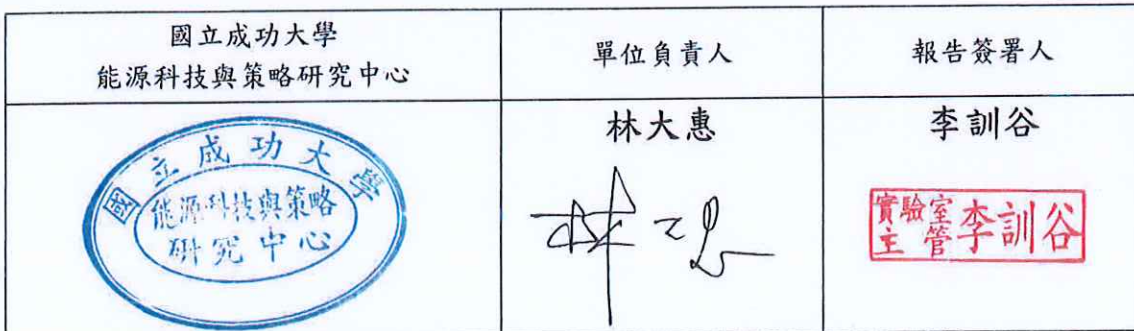 國立成功大學
能源科技與策略研究中心
單位負責人
報告簽署人
國立成功大學
能源科技與策略
研究中心
林大惠
李訓谷
實驗室
主管
李訓谷